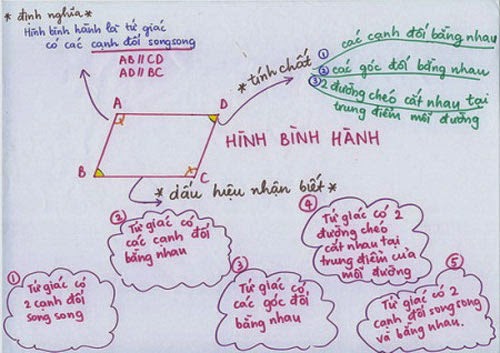 * định nghĩa *
Hình bình hành là tứ giác
có các cạnh đối song song
AB // CD
AD // BC
* tính chất *
① các cạnh đối bằng nhau
② các góc đối bằng nhau
③ 2 đường chéo cắt nhau tại
trung điểm mỗi đường
A
D
B
C
HÌNH BÌNH HÀNH
* dấu hiệu nhận biết *
①
Tứ giác có
2 cạnh đối
song song
②
Tứ giác có
các cạnh đối
bằng nhau
③
Tứ giác có
các góc đối
bằng nhau
④
Tứ giác có 2
đường chéo
cắt nhau tại
trung điểm của
mỗi đường
⑤
Tứ giác có 2
cạnh đối song song
và bằng nhau.